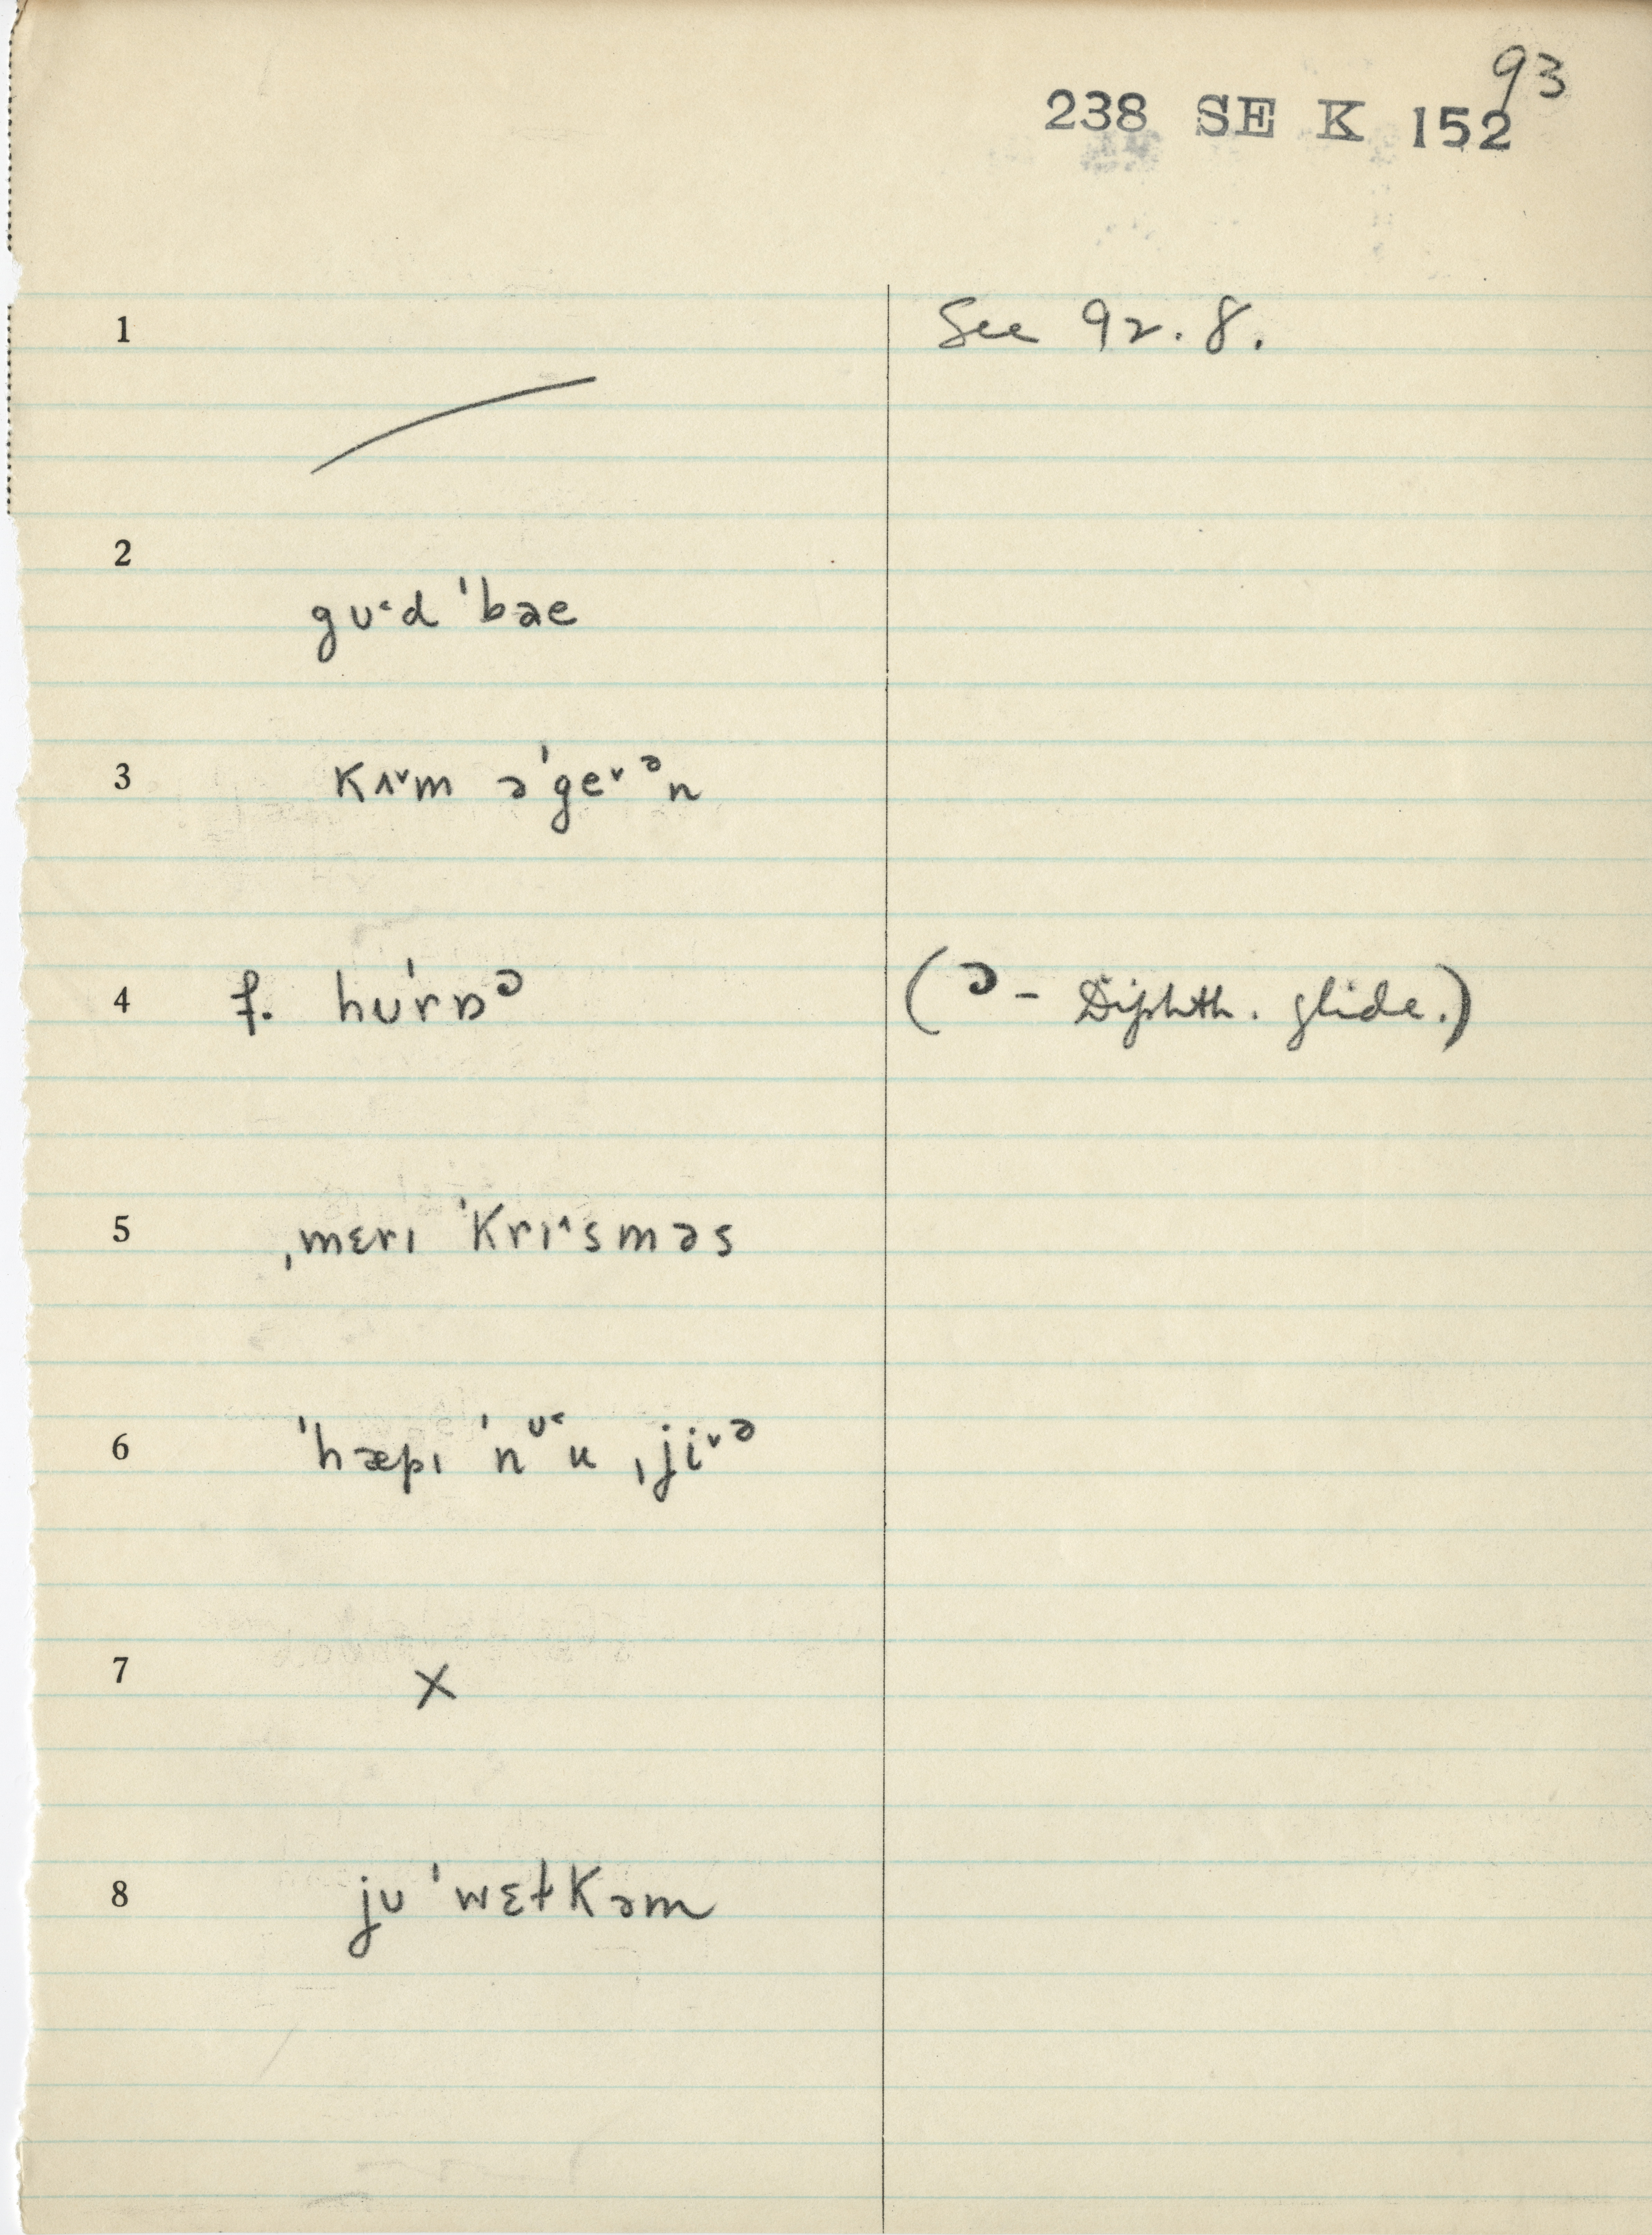 93
238 SE K 152
1 See 92.8.
2
gʊ˂d ˈbəe
3 kʌ˅m əˈge˅ᵊn
4 f. hʊˈrɒᵓ (ᵓ – Diphth. glide.)
5 ˌmɛrɪ ˈkrɪ˄sməs
6 ˈhæpɪ ˈnᶷ˂u ˌji˅ᵊ
7 X
8 jʊ ˈwɛɫkəm